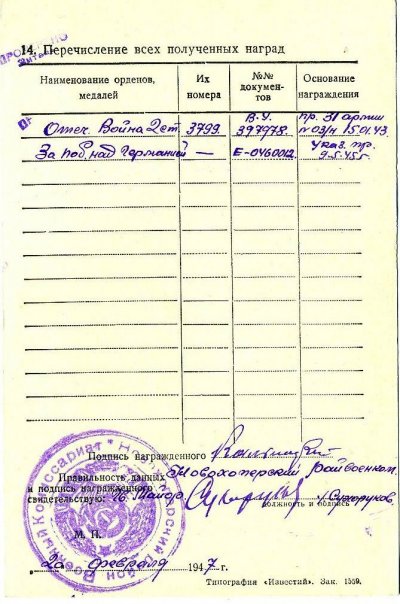 14. Перечисление всех полученных наград
Наименование орденов, медалей
Их номера
№№ документов
Основание награждения
Отеч. Война 2 ст. 3799. В.У. 397978. пр. 31 армии № 03/н 15.01.43
За поб. над Германией — Е-0460012. Указ. пр. 9.5.45 г.
Подпись награжденного
Новохоперский Райвоенком.
Правильность данных
и подпись награжденного
свидетельствую: Майор /Сухоруков.
должность и подпись
М. П.
февраля 1947 г.
Типография «Известий». Зак. 1359.